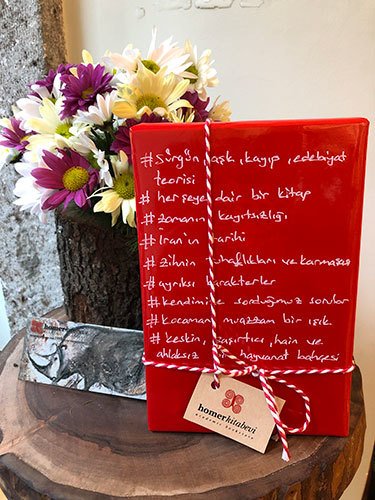 #Sürgün, aşk, kayıp, edebiyat
teorisi
# her şeye dair bir kitap
# zamanın kayıtsızlığı
# İran'ın tarihi
# zihnin tuhaflıkları ve karmaşası
# ayrıksı karakterler
# kendimize sorduğumuz sorular
# kocaman muazzam bir ışık
# keskin, şaşırtıcı, hain ve
ahlaksız hayvanat bahçesi
homerkitabevi